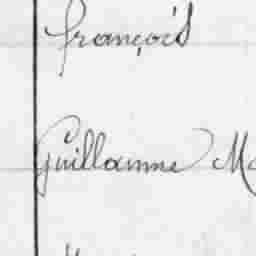 françois
Guillaume